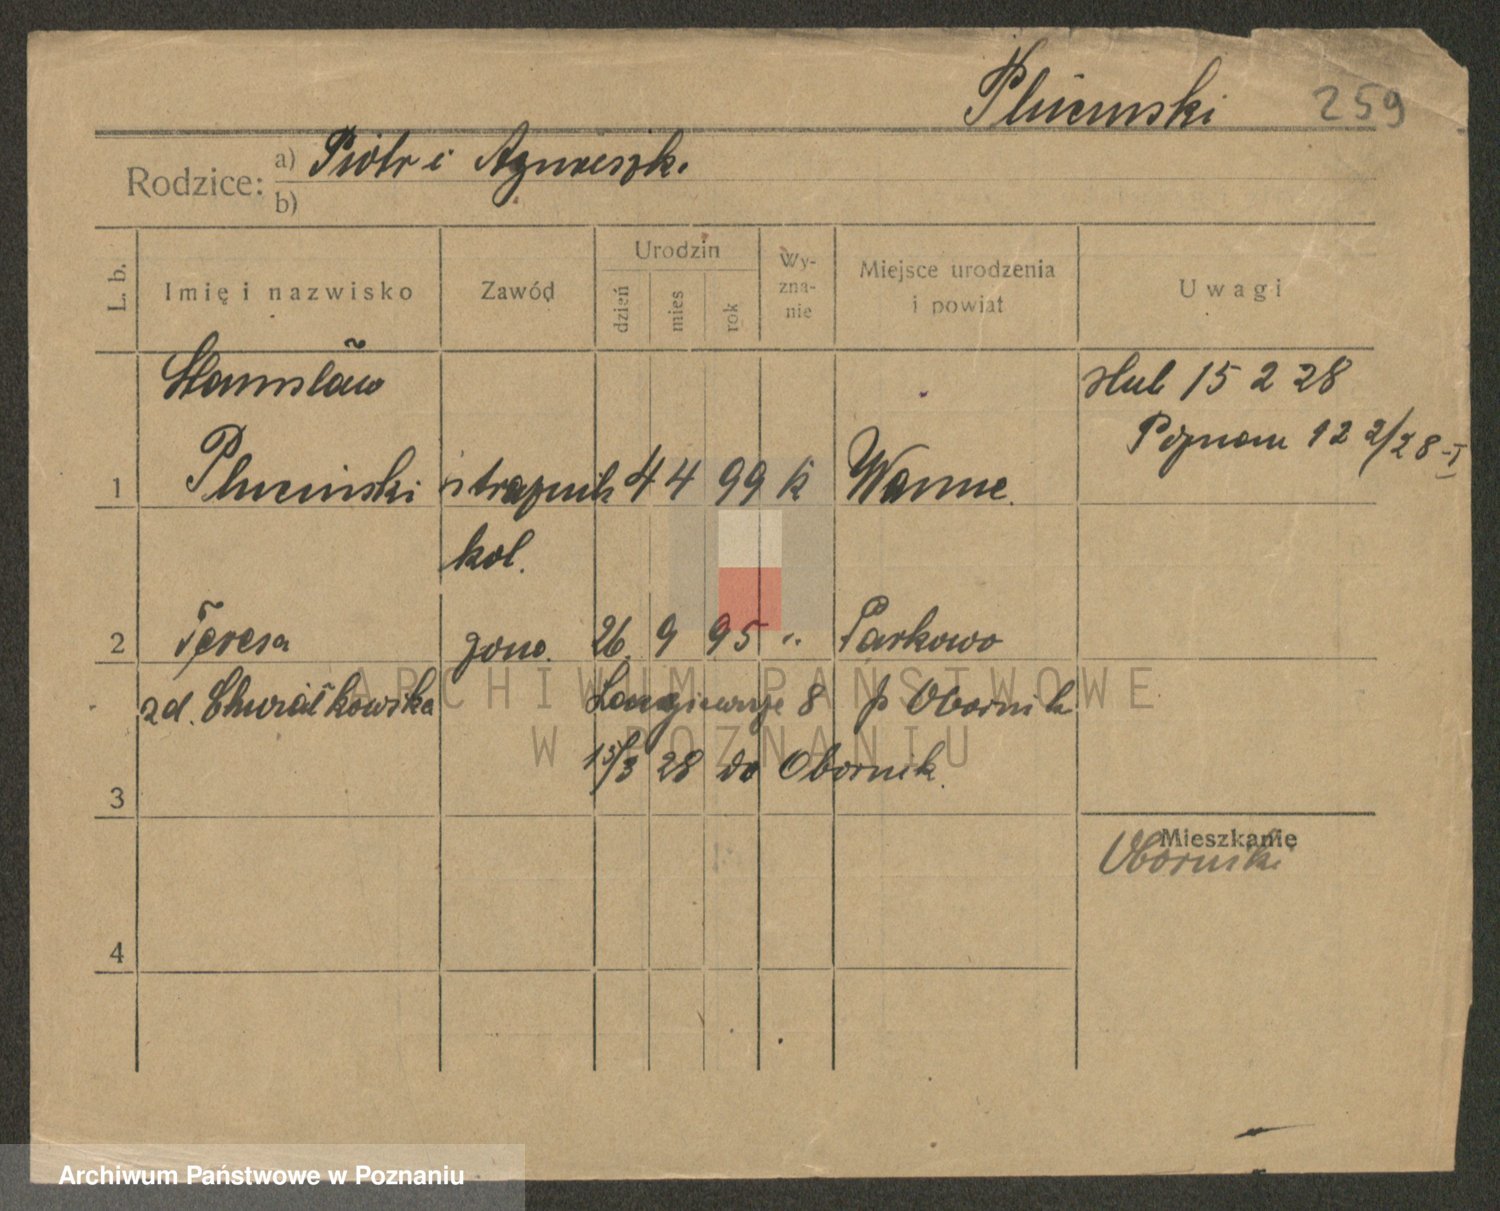 Pluciński 259
Rodzice: a) Piotr i Agnieszk.
b)
L. b. Imię i nazwisko Zawód Urodzin dzień mies rok Wyznanie Miejsce urodzenia i powiat Uwagi
Stanisław ślub 15 2 28
Poznań 12 2/28 - I
1 Pluciński strażnik 4 4 99 k Wanne.
kol.
2 Teresa 26. 9 95 " Parkowo
zd. 8 p Obornik
15/3 28 do Obornik.
3
Mieszkanie
Oborniki
4
ARCHIWUM PAŃSTWOWE
W POZNANIU
Archiwum Państwowe w Poznaniu